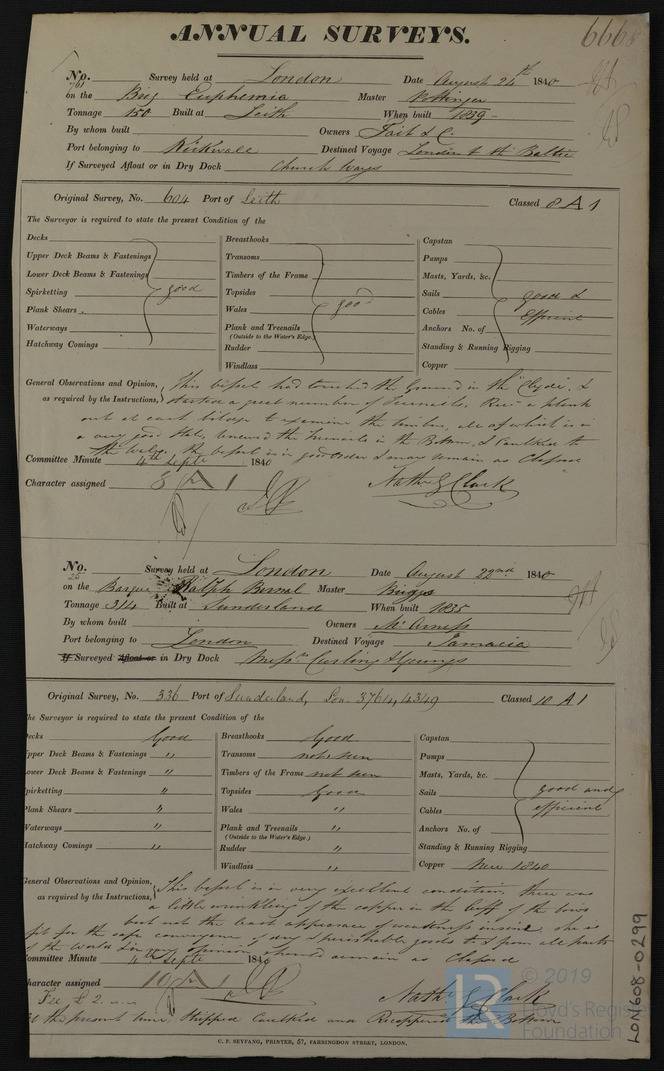 ANNUAL SURVEYS.
6668
No. 761 Survey held at London Date August 24th 1840
on the Brig Euphemia Master Nottinger
Tonnage 150 Built at Leith When built 1839
By whom built Owners Tait & C.
Port belonging to Kirkwall Destined Voyage London to the Baltic
If Surveyed Afloat or in Dry Dock Church Ways
Original Survey, No. 604 Port of Leith Classed 8 A 1
The Surveyor is required to state the present Condition of the
Decks Breasthooks Capstan
Upper Deck Beams & Fastenings Transoms Pumps
Lower Deck Beams & Fastenings Timbers of the Frame Masts, Yards, &c.
Spirketting good Topsides Sails good &
Plank Shears Wales good Cables Efficient
Waterways Plank and Treenails Anchors No. of
(Outside to the Water's Edge.)
Hatchway Comings Rudder Standing & Running Rigging
Windlass Copper
General Observations and Opinion, This vessel had touched the Ground in the "Clyde", &
as required by the Instructions, started a great number of Treenails. a plank
out at each bilge to examine the timbers, all of which is in
a very good state, the treenails in the Bottom, & Caulked to
the wales. the vessel is in good order & may remain as Classed
Committee Minute 4th Septr 1840
Character assigned 8 A 1 Nathl G Clark
No. 25 Survey held at London Date August 22nd 1840
on the Barque Ralph Bernal Master Briggs
Tonnage 314 Built at Sunderland When built 1835
By whom built Owners
Port belonging to London Destined Voyage Jamacia
If Surveyed Afloat or in Dry Dock Messrs Curling & Youngs
Original Survey, No. 336 Port of Sunderland, Lon. 3764, 4349 Classed 10 A 1
The Surveyor is required to state the present Condition of the
Decks Good Breasthooks Good Capstan
Upper Deck Beams & Fastenings " Transoms not seen Pumps
Lower Deck Beams & Fastenings " Timbers of the Frame not seen Masts, Yards, &c.
Spirketting " Topsides Good Sails good and
Plank Shears " Wales " Cables efficient
Waterways " Plank and Treenails " Anchors No. of
(Outside to the Water's Edge.)
Hatchway Comings " Rudder " Standing & Running Rigging
Windlass " Copper New 1840
General Observations and Opinion, This vessel is in very excellent condition, there was
as required by the Instructions, a little wrinkling of the copper in the luff of the bows
but not the least appearance of weakness inside, she is
fit for the safe conveyance of dry & perishable goods to & from all parts
of the World & in my opinion should remain as Classed
Committee Minute 4th Septr 1840
Character assigned 10 A 1
Fee £ 2. Nathl G Clark
At the present time, Stripped Caulked and Recoppered the Bottom
C. F. SEYFANG, PRINTER, 57, FARRINGDON STREET, LONDON.
LON608-0299
© 2019
LR Lloyd's Register
Foundation